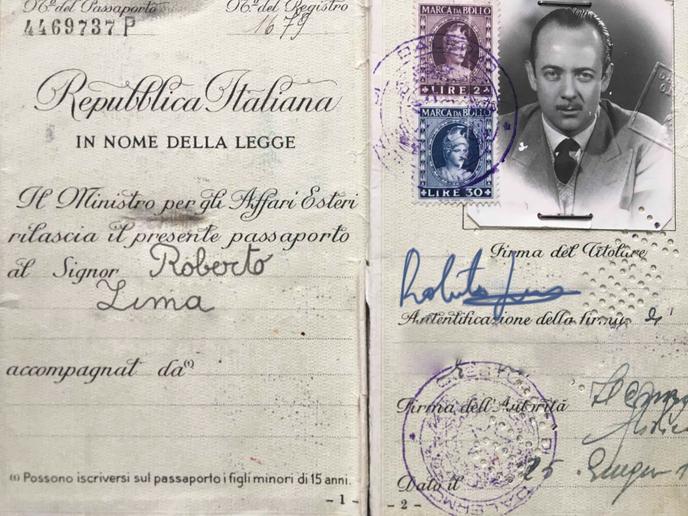 No. del Passaporto No. del Registro
4469737 P 1679
Repubblica Italiana
IN NOME DELLA LEGGE
Il Ministro per gli Affari Esteri
rilascia il presente passaporto
al Signor Roberto
Lima
accompagnat da(1)
(1) Possono iscriversi sul passaporto i figli minori di 15 anni.
- 1 -
MARCA DA BOLLO
LIRE 2
MARCA DA BOLLO
LIRE 30
Firma del Titolare
Autentificazione della firma d
Firma dell'Autorità
Dato il 25
- 2 -